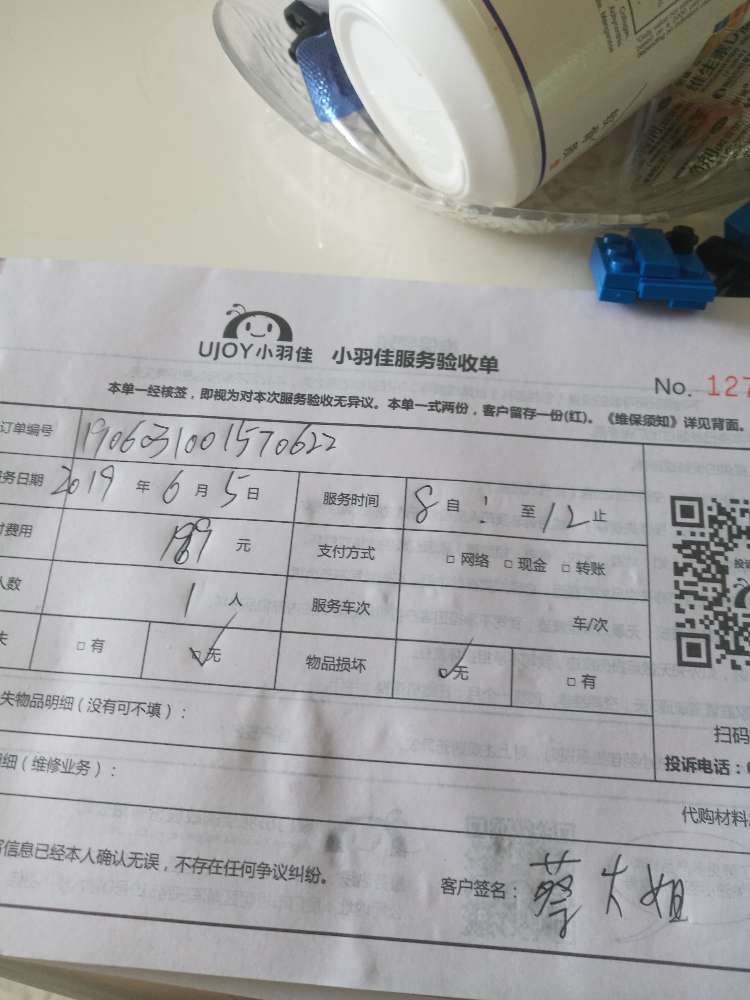 UJOY小羽佳 小羽佳服务验收单
No. 127
本单一经核签，即视为对本次服务验收无异议。本单一式两份，客户留存一份(红)。《维保须知》详见背面。
订单编号 1906031001570622
务日期 2019 年 6 月 5 日 服务时间 8 自 : 至 12 止
费用 199 元 支付方式 □ 网络 □ 现金 □ 转账
人数 1 人 服务车次 车/次
失 □ 有 □ 无 物品损坏 □ 无 □ 有
失物品明细（没有可不填）：
扫码
细（维修业务）：
投诉电话：0
代购材料
信息已经本人确认无误，不存在任何争议纠纷。
客户签名： 蔡大姐